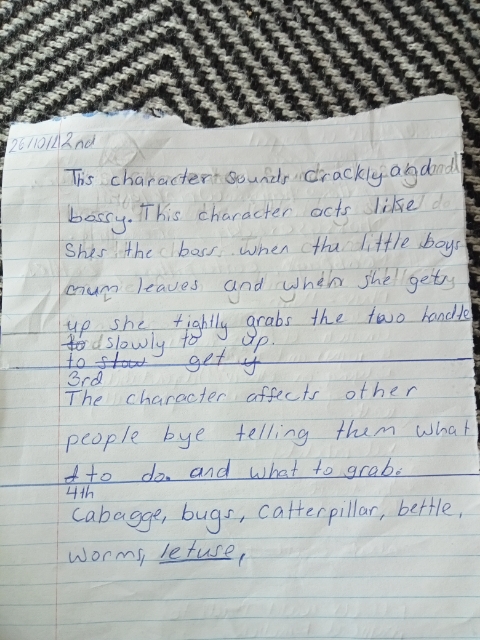 26/10/21 2nd
This character sounds crackly and
bossy. This character acts like
Shes the boss when the little boys
mum leaves and when she gets
up she tightly grabs the two handle
to slowly to up.
to slow get y
3rd
The character affects other
people bye telling them what
to do. and what to grab.
4th
Cabagge, bugs, Catterpillar, bettle,
worms, letuse,